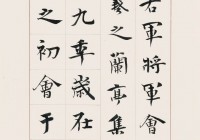 右軍將軍會
羲之蘭亭集
九年歲在
之初會于